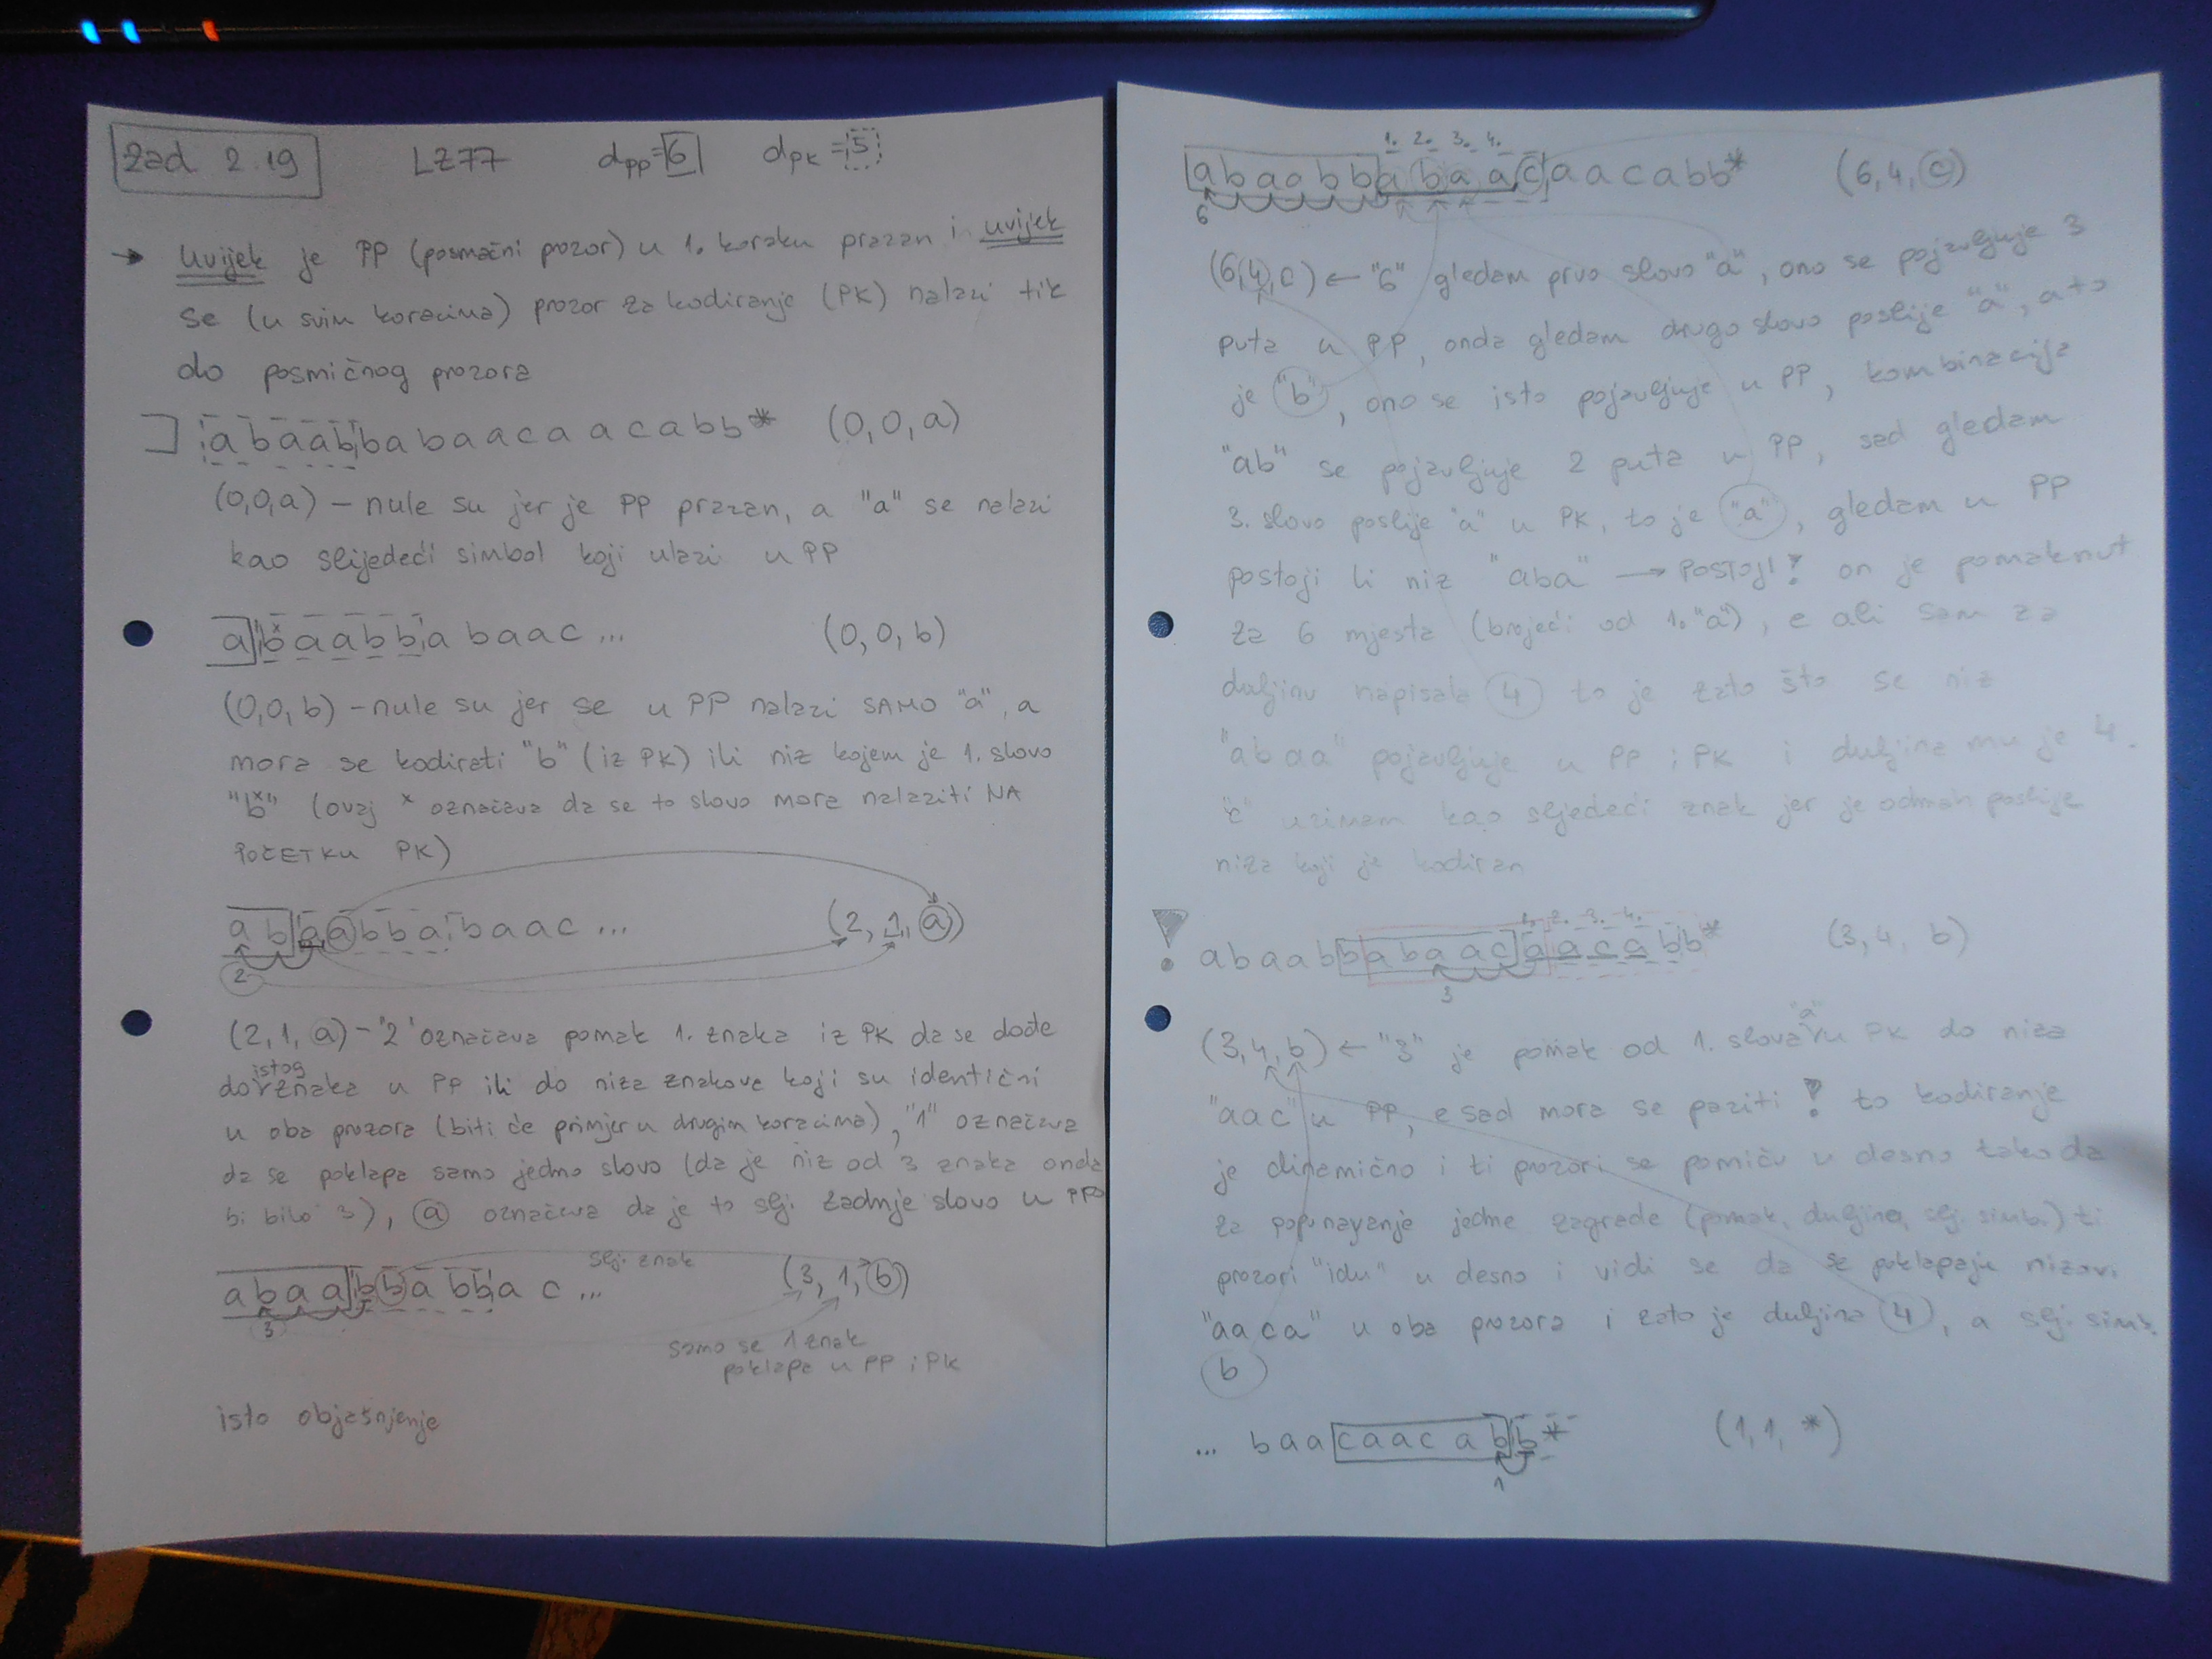 Zad 2.19 LZ77 dpp=6 dpk=5
→ Uvijek je PP (posmačni prozor) u 1. koraku prazan i uvijek
se (u svim koracima) prozor za kodiranje (PK) nalazi tik
do posmičnog prozora
abaabbabaacaacabb* (0,0,a)
(0,0,a) – nule su jer je PP prazan, a "a" se nalazi
kao slijedeći simbol koji ulazi u PP
abaabbabaac ... (0,0,b)
(0,0,b) – nule su jer se u PP nalazi SAMO "a", a
mora se kodirati "b" (iz PK) ili niz kojem je 1. slovo
"bˣ" (ovaj ˣ označava da se to slovo mora nalaziti NA
POČETKU PK)
abaabbabaac ... (2,1,a)
2
(2,1,a) – "2" označava pomak 1. znaka iz PK da se dođe
do istog znaka u PP ili do niza znakova koji su identični
u oba prozora (biti će primjer u drugim koracima), "1" označava
da se poklapa samo jedno slovo (da je niz od 3 znaka onda
bi bilo 3), a označava da je to slj. zadnje slovo u PP
slj. znak
abaabbabbac ... (3,1,b)
3
samo se 1 znak
poklapa u PP i PK
isto objašnjenje
1. 2. 3. 4.
abaabbabaacaacabb* (6,4,c)
6
(6,4,c) ← "6" gledam prvo slovo "a", ono se pojavljuje 3
puta u PP, onda gledam drugo slovo poslije "a", a to
je "b", ono se isto pojavljuje u PP, kombinacija
"ab" se pojavljuje 2 puta u PP, sad gledam
3. slovo poslije "a" u PK, to je "a", gledam u PP
postoji li niz "aba" → POSTOJI! on je pomaknut
za 6 mjesta (brojeći od 1. "a"), e ali sam za
duljinu napisala 4 to je zato što se niz
"abaa" pojavljuje u PP i PK i duljina mu je 4.
"c" uzimam kao sljedeći znak jer je odmah poslije
niza koji je kodiran
1. 2. 3. 4.
! abaabbabaacaacabb* (3,4,b)
3
(3,4,b) ← "3" je pomak od 1. slova "a" u PK do niza
"aac" u PP, e sad mora se paziti! to kodiranje
je dinamično i ti prozori se pomiču u desno tako da
za popunjavanje jedne zagrade (pomak, duljina, slj. simb.) ti
prozori "idu" u desno i vidi se da se poklapaju nizovi
"aaca" u oba prozora i zato je duljina 4, a slj. simb.
b
... baacaacabb* (1,1,*)
1